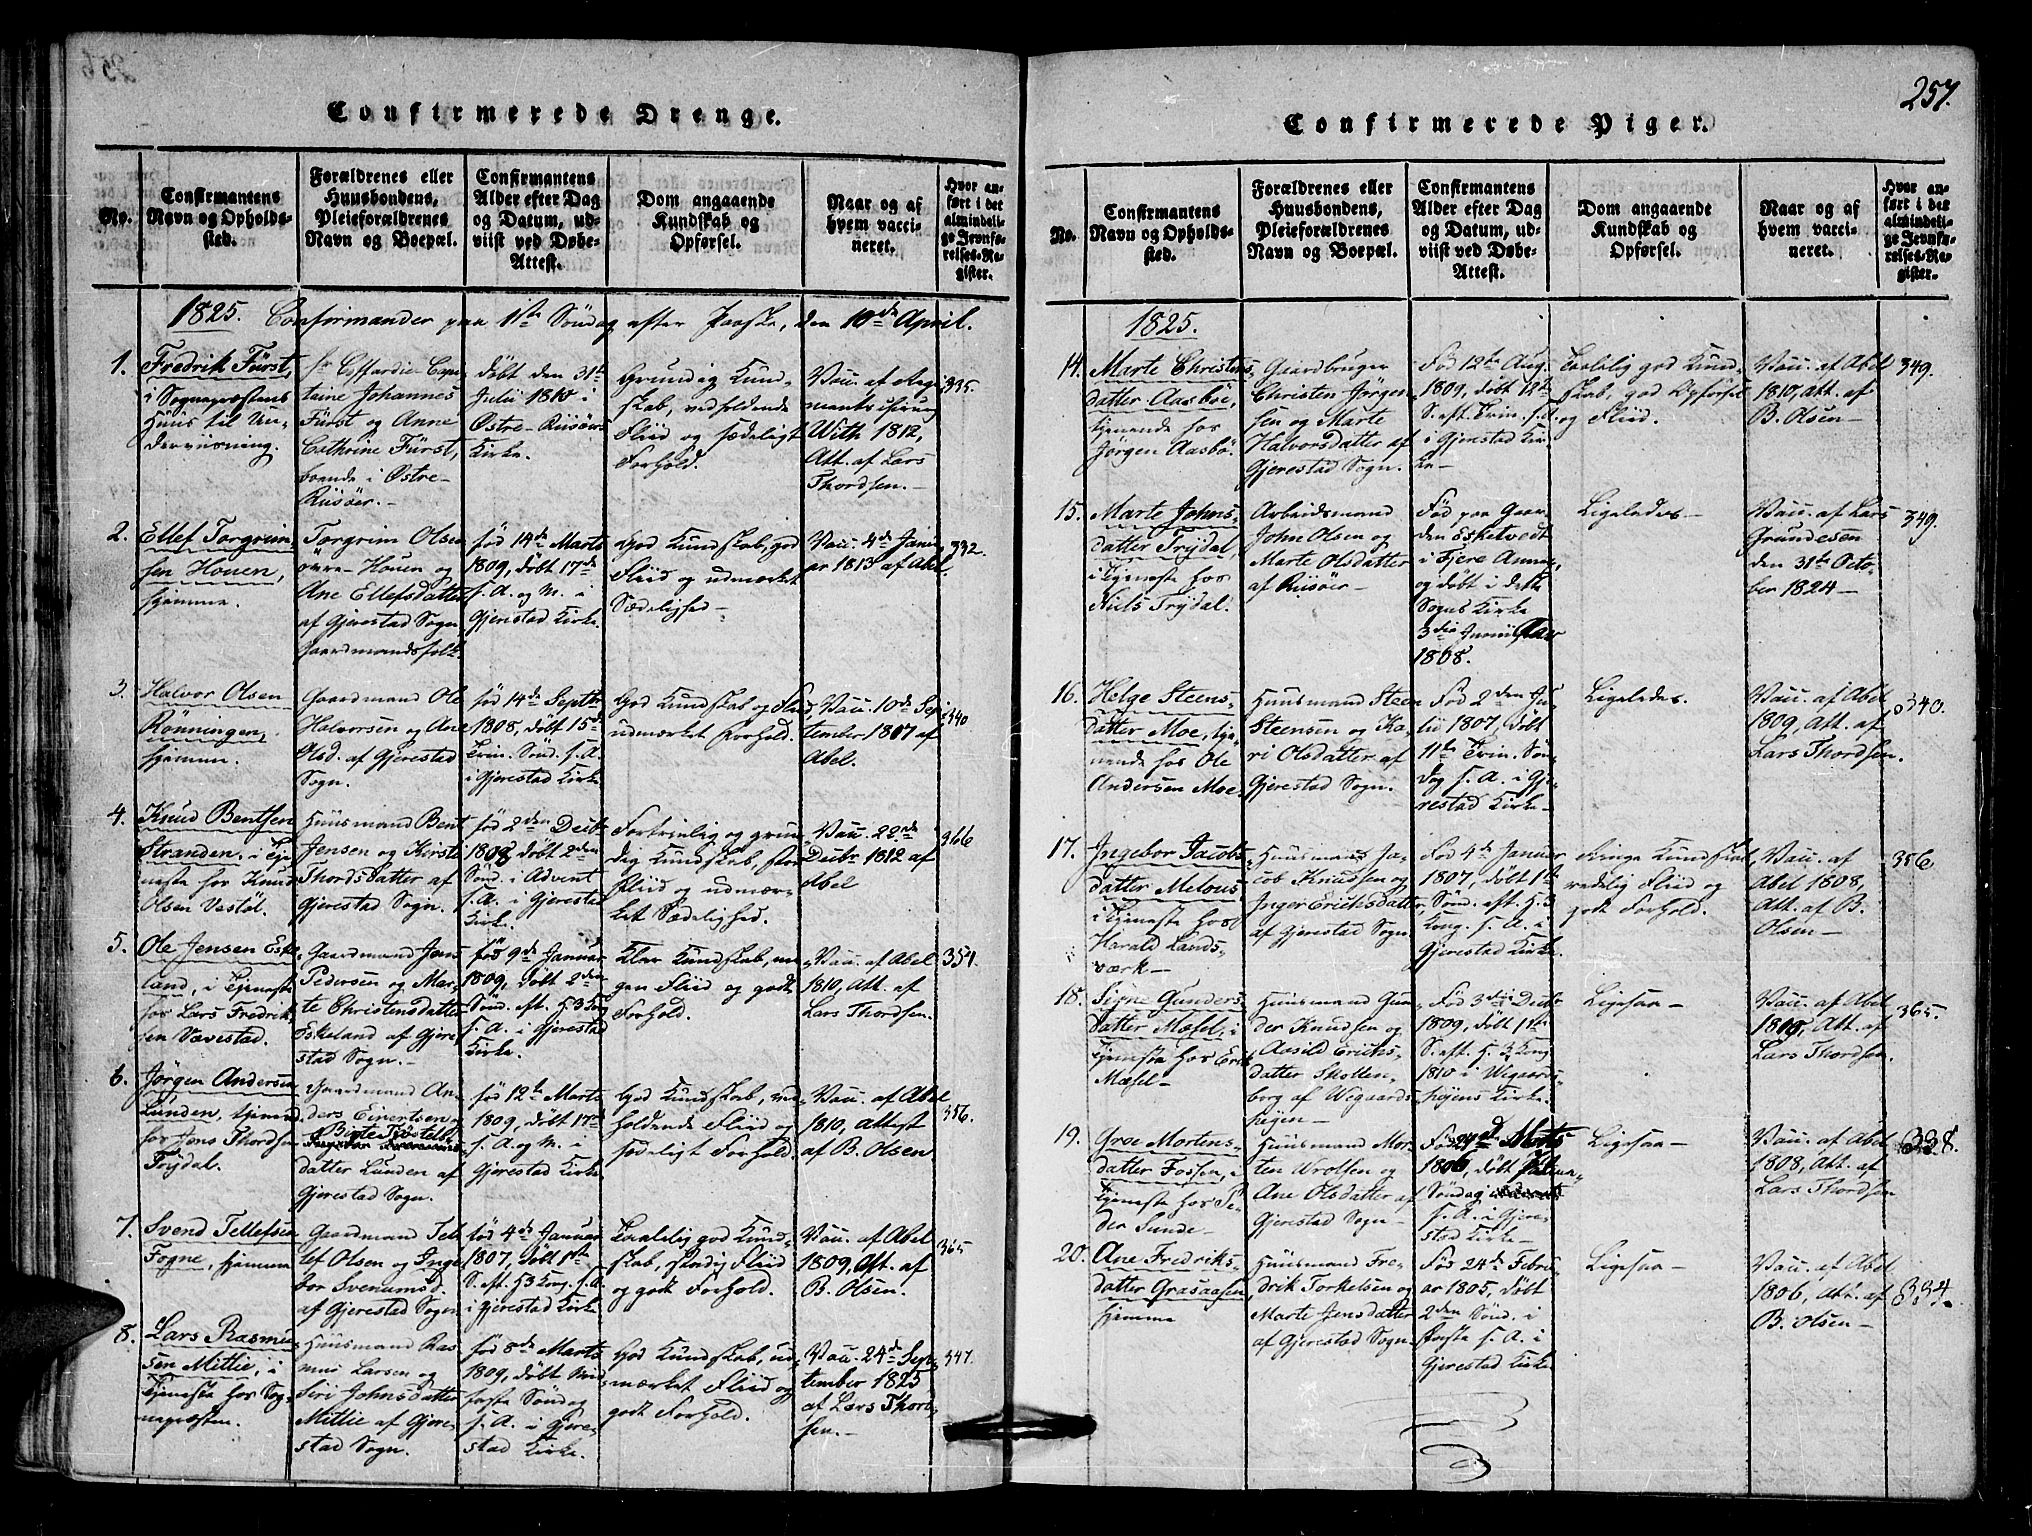 Confirmerede Drenge.
No.
Confirmantens
Navn og Opholds-
sted.
Forældrenes eller
Huusbondens,
Pleieforældrenes
Navn og Boepæl.
Confirmantens
Alder efter Dag
og Datum, ud-
viist ved Døbe-
Attest.
Dom angaaende
Kundskab og
Opførsel.
Naar og af
hvem vacci-
neret.
Hvor an-
ført i det
almindeli-
ge Jevnfø-
relses-Re-
gister.
1825. Confirmander paa 1ste Söndag after Paaske, den 10de April.
1.
Fredrik Fürst,
i Sognepræstens
Huus til Un-
derviisning.
Capi-
taine Johannes
Fürst og Anne
Cathrine Fürst,
boende i Østre-
Riisöer.
döbt den 31te
Julii 1810 i
Østre-Riisöers
Kirke.
Grundig Kund-
skab, vedholdende
Fliid og sædeligt
Forhold.
Vacc. af Regi-
mentschirurg
With 1812,
Att. af Lars
Thordsen.
335.
2.
Ellef Torgrim-
sen Houen,
hjemme.
Torgrim Olsen
övre-Houen og
Ane Ellefsdatter
af Gjerestad Sogn
Gaardmandsfolk.
fød 14de Marts
1809, döbt 17de
s. A. og M. i
Gjerestad Kirke.
God Kundskab, god
Fliid og udmærket
Sædelighed
Vacc. 4de Janu-
ar 1813 af Abel.
332.
3.
Halvor Olsen
Rönningen,
hjemme.
Gaardmand Ole
Halvorsen og Ane
Olsd. af Gjerestad
Sogn.
fød 14de Septbr
1808, döbt 15de
Trin. Sönd. s. A.
i Gjerestad Kirke
God Kundskab og Fliid,
udmærket Forhold.
Vacc. 10de Sep-
tember 1807 af
Abel.
340
4.
Knud Bentsen
Stranden, i Tje-
neste hos Knud
Olsen Vestöl.
Huusmand Bent
Jensen og Kirsti
Thordsdatter af
Gjerestad Sogn.
fød 2den Decbr
1808, döbt 2den
Sönd. i Advent
s. A. i Gjerestad
Kirke.
Fortrinlig og grun-
dig Kundskab, stor
Fliid og udmær-
ket Sædelighed.
Vacc. 22de
Decbr. 1812 af
Abel
366
5.
Ole Jensen Eske-
land, i Tjeneste
hos Lars Fredrik-
sen Vævestad.
Gaardmand Jens
Pedersen og Mar-
te Christensdatter
Eskeland af Gjere-
stad Sogn.
fød 9de Januar
1809, döbt 2den
Sönd. aft. H3Kong.
s. A. i Gjerestad
Kirke.
Klar Kundskab, me-
gen Fliid og godt
Forhold.
Vacc. af Abel
1810, Att. af
Lars Thordsen.
354.
6.
Jørgen Andersen
Lunden, tjenende
hos Jens Thordsen
Trydal.
Gaardmand An-
ders Einertsen og
datter Lunden af
Gjerestad Sogn.
fød 12te Marts
1809, döbt 17de
s. A. og M. i
Gjerestad Kirke
God Kundskab, ved-
holdende Fliid og
sædeligt Forhold.
Vacc. af Abel
1810, Attest
af B. Olsen
356.
7.
Svend Tellefsen
Fogne, hjemme
Gaardmand Tel-
lef Olsen og Inge-
bor Svenumsd.
af Gjerestad Sogn
fød 4de Januar
1807, döbt 1ste
S. aft. H3Kong. s. A.
i Gjerestad Kirke
Taalelig god Kund-
skab, stadig Fliid
og godt Forhold.
Vacc. af Abel
1809, Att. af
B. Olsen.
365
8.
Lars Rasmus-
sen Mittie, i
Tjeneste hos Sog-
nepræsten.
Huusmand Ras-
mus Larsen og
Siri Johnsdatter
Mittie af Gjere-
stad Sogn.
fød 8de Marts
1809, döbt Mid-
faste Söndag
s. A. i Gjere-
stad Kirke.
God Kundskab, ud-
mærket Fliid og
godt Forhold.
Vacc. 24de Sep-
tember 1825
af Lars Thord-
sen.
347.
257.
Confirmerede Piger.
No.
Confirmantens
Navn og Opholds-
sted.
Forældrenes eller
Huusbondens,
Pleieforældrenes
Navn og Boepæl.
Confirmantens
Alder efter Dag
og Datum, ud-
viist ved Døbe-
Attest.
Dom angaaende
Kundskab og
Opførsel.
Naar og af
hvem vacci-
neret.
Hvor an-
ført i det
almindeli-
ge Jevnfø-
relses-Re-
gister.
1825.
14.
Marte Christens-
datter Aasböe,
tjenende hos
Jörgen Aasbö.
Gaardbruger
Christen Jörgen-
sen og Marte
Halvorsdatter af
Gjerestad Sogn.
Fød 12te Aug.
1809, döbt 12te
S. aft. Trin. s. A.
i Gjerestad Kir-
ke
Taalelig god Kund-
skab, god Opførsel
og Fliid.
Vacc. af Abel
1810, Att. af
B. Olsen
349.
15.
Marte Johns-
datter Trydal,
i Tjeneste hos
Niels Trydal.
Arbeidsmand
John Olsen og
Marte Olsdatter
af Riisöer
Fød paa Gaar-
den Eskelvedt
og döbt i dette
Sogns Kirke
3die Junii
1808.
Ligeledes
Vacc. af Lars
Grundesen
den 31te Octo-
ber 1824
349.
16.
Helge Steens-
datter Moe, tje-
nende hos Ole
Andersen Moe.
Huusmand Steen
Steensen og Ka-
ri Olsdatter af
Gjerestad Sogn.
Fød 2den Ju-
lii 1807, döbt
11te Trin. Sön-
dag s. A. i Gje-
restad Kirke
Ligeledes.
Vacc. af Abel
1809, Att. af
Lars Thordsen.
340.
17.
Ingebor Jacobs-
datter Melaas
i Tjeneste hos
Harald Lands-
værk
Huusmand Ja-
cob Knudsen og
Inger Erichsdatter
af Gjerestad Sogn
Fød 4de Januar
1807, döbt 1ste
Sönd. aft. H.3
Kong. s. A. i
Gjerestad Kirke.
Ringe Kundskab,
redelig Fliid og
godt Forhold.
Vacc. af
Abel 1808,
Att. af B.
Olsen
356
18.
Signe Gunders-
datter Mæsel, i
Tjeneste hos Erik
Mæsel
Huusmand Gun-
der Knudsen og
Aasild Erichs-
datter Skotten-
borg af Wegaards-
hejen
Fød 3die Decbr.
1809, döbt 1ste
S. aft. H. 3 Kong.
1810 i Wegaards-
hejens Kirke.
Ligesaa
Vacc. af Abel
1810, Att. af
Lars Thordsen.
365.
19.
Groe Mortens-
datter Fossen, i
Tjeneste hos Pe-
der Sunde
Huusmand Mor-
ten Wrolsen og
Ane Olsdatter af
Gjerestad Sogn
Fød 27de Marts
1806, döbt
Söndag
s. A. i Gjere-
stad Kirke
Ligesaa
Vacc. af Abel
1808, Att. af
Lars Thordsen
338.
20.
Ane Fredriks-
datter Grasaasen,
hjemme
Huusmand Fre-
drik Torkelsen og
Marte Jensdatter
af Gjerestad Sogn
Fød 24de Febru-
ar 1805, döbt
2den Sönd. i
Faste s. A. i
Gjerestad Kirke
Ligesaa
Vacc. af Abel
1806, Att. af
B. Olsen
334.